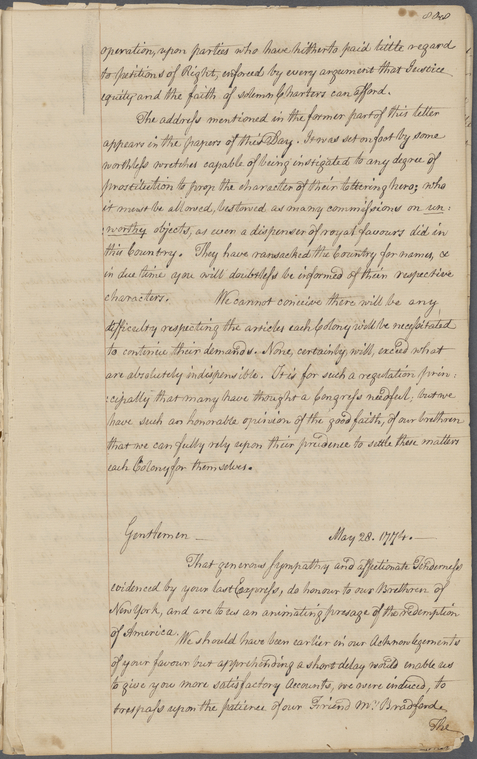 808
operation, upon parties who have hitherto paid little regard
to petitions of Right, enforced by every argument that Justice
equity and the faith of solemn Charters can afford.
The address mentioned in the former part of this letter
appears in the papers of this Day. It was set on foot by some
worthless wretches capable of being instigated to any degree of
prostitution to prop the character of their tottering hero; who
it must be allowed, bestowed as many commissions on un:
worthy objects, as ever a dispenser of royal favours did in
this Country. They have ransacked the Country for names, &
in due time you will doubtless be informed of their respective
characters. We cannot conceive there will be any
difficulty respecting the articles each Colony will be necessitated
to continue their demands. None, certainly, will, exceed what
are absolutely indispensible. It is for such a regulation prin:
cipally that many have thought a Congress needful; but we
have such an honorable opinion of the good faith, of our brethren
that we can fully rely upon their prudence to settle these matters
each Colony for themselves.
Gentlemen May 28. 1774.
That generous Sympathy and affectionate Tenderness
evidenced by your last Express, do honour to our Brethren of
New York, and are to us an animating presage of the redemption
of America.
We should have been earlier in our Acknowlegements
of your favour but apprehending a short delay would enable us
to give you more satisfactory Accounts, we were induced, to
trespass upon the patience of our Friend Mr. Bradford.
The